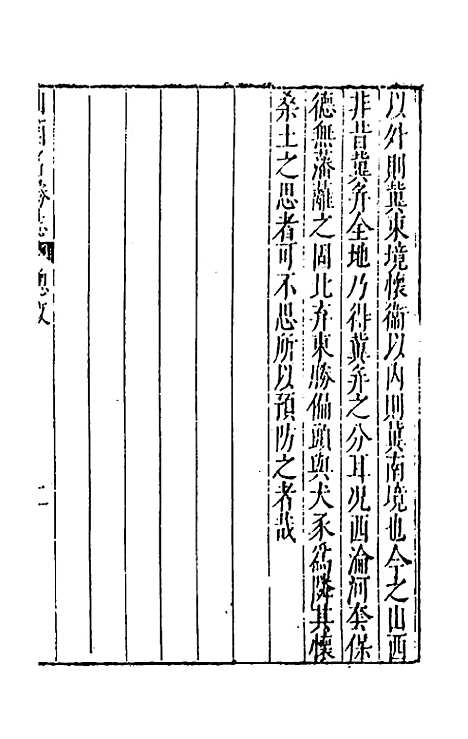 以外則冀東境懷衞以内則冀南境也今之山西
非昔冀并全地乃得冀并之分耳况西淪河套保
德無藩籬之固北弃東勝偏頭與犬豕為隣其懷
桑土之思者可不思所以預防之者哉
名勝志
總敘
二